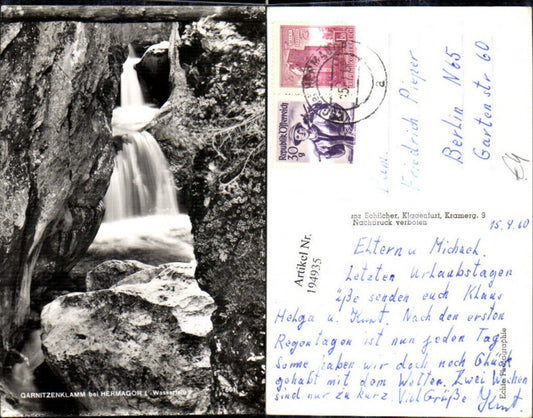 GARNITZENKLAMM bei HERMAGOR I. Wasserfall
Republik Österreich
30 g
Fam.
Friedrich Pieper
Berlin N65
Gartenstr 60
€4
nz Schilcher, Klagenfurt, Kramerg. 9
Nachdruck verboten
Artikel Nr.
194935
Echte Photographie
15.9.60
Eltern u Michael.
Letzten Urlaubstagen
üße senden euch Klaus
Helga u. Kurt. Nach den ersten
Regentagen ist nun jeden Tag
Sonne haben wir doch noch Glück
gehabt mit dem Wetter. Zwei Wochen
sind nur zu kurz. Viel Grüße Kurt.